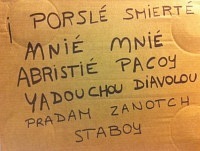 i PORSLÉ SMIERTÉ
MNIÉ MNIÉ
ABRISTIÉ PACOY
YADOUCHOU DIAVOLOU
PRADAM ZANOTCH
STABOY